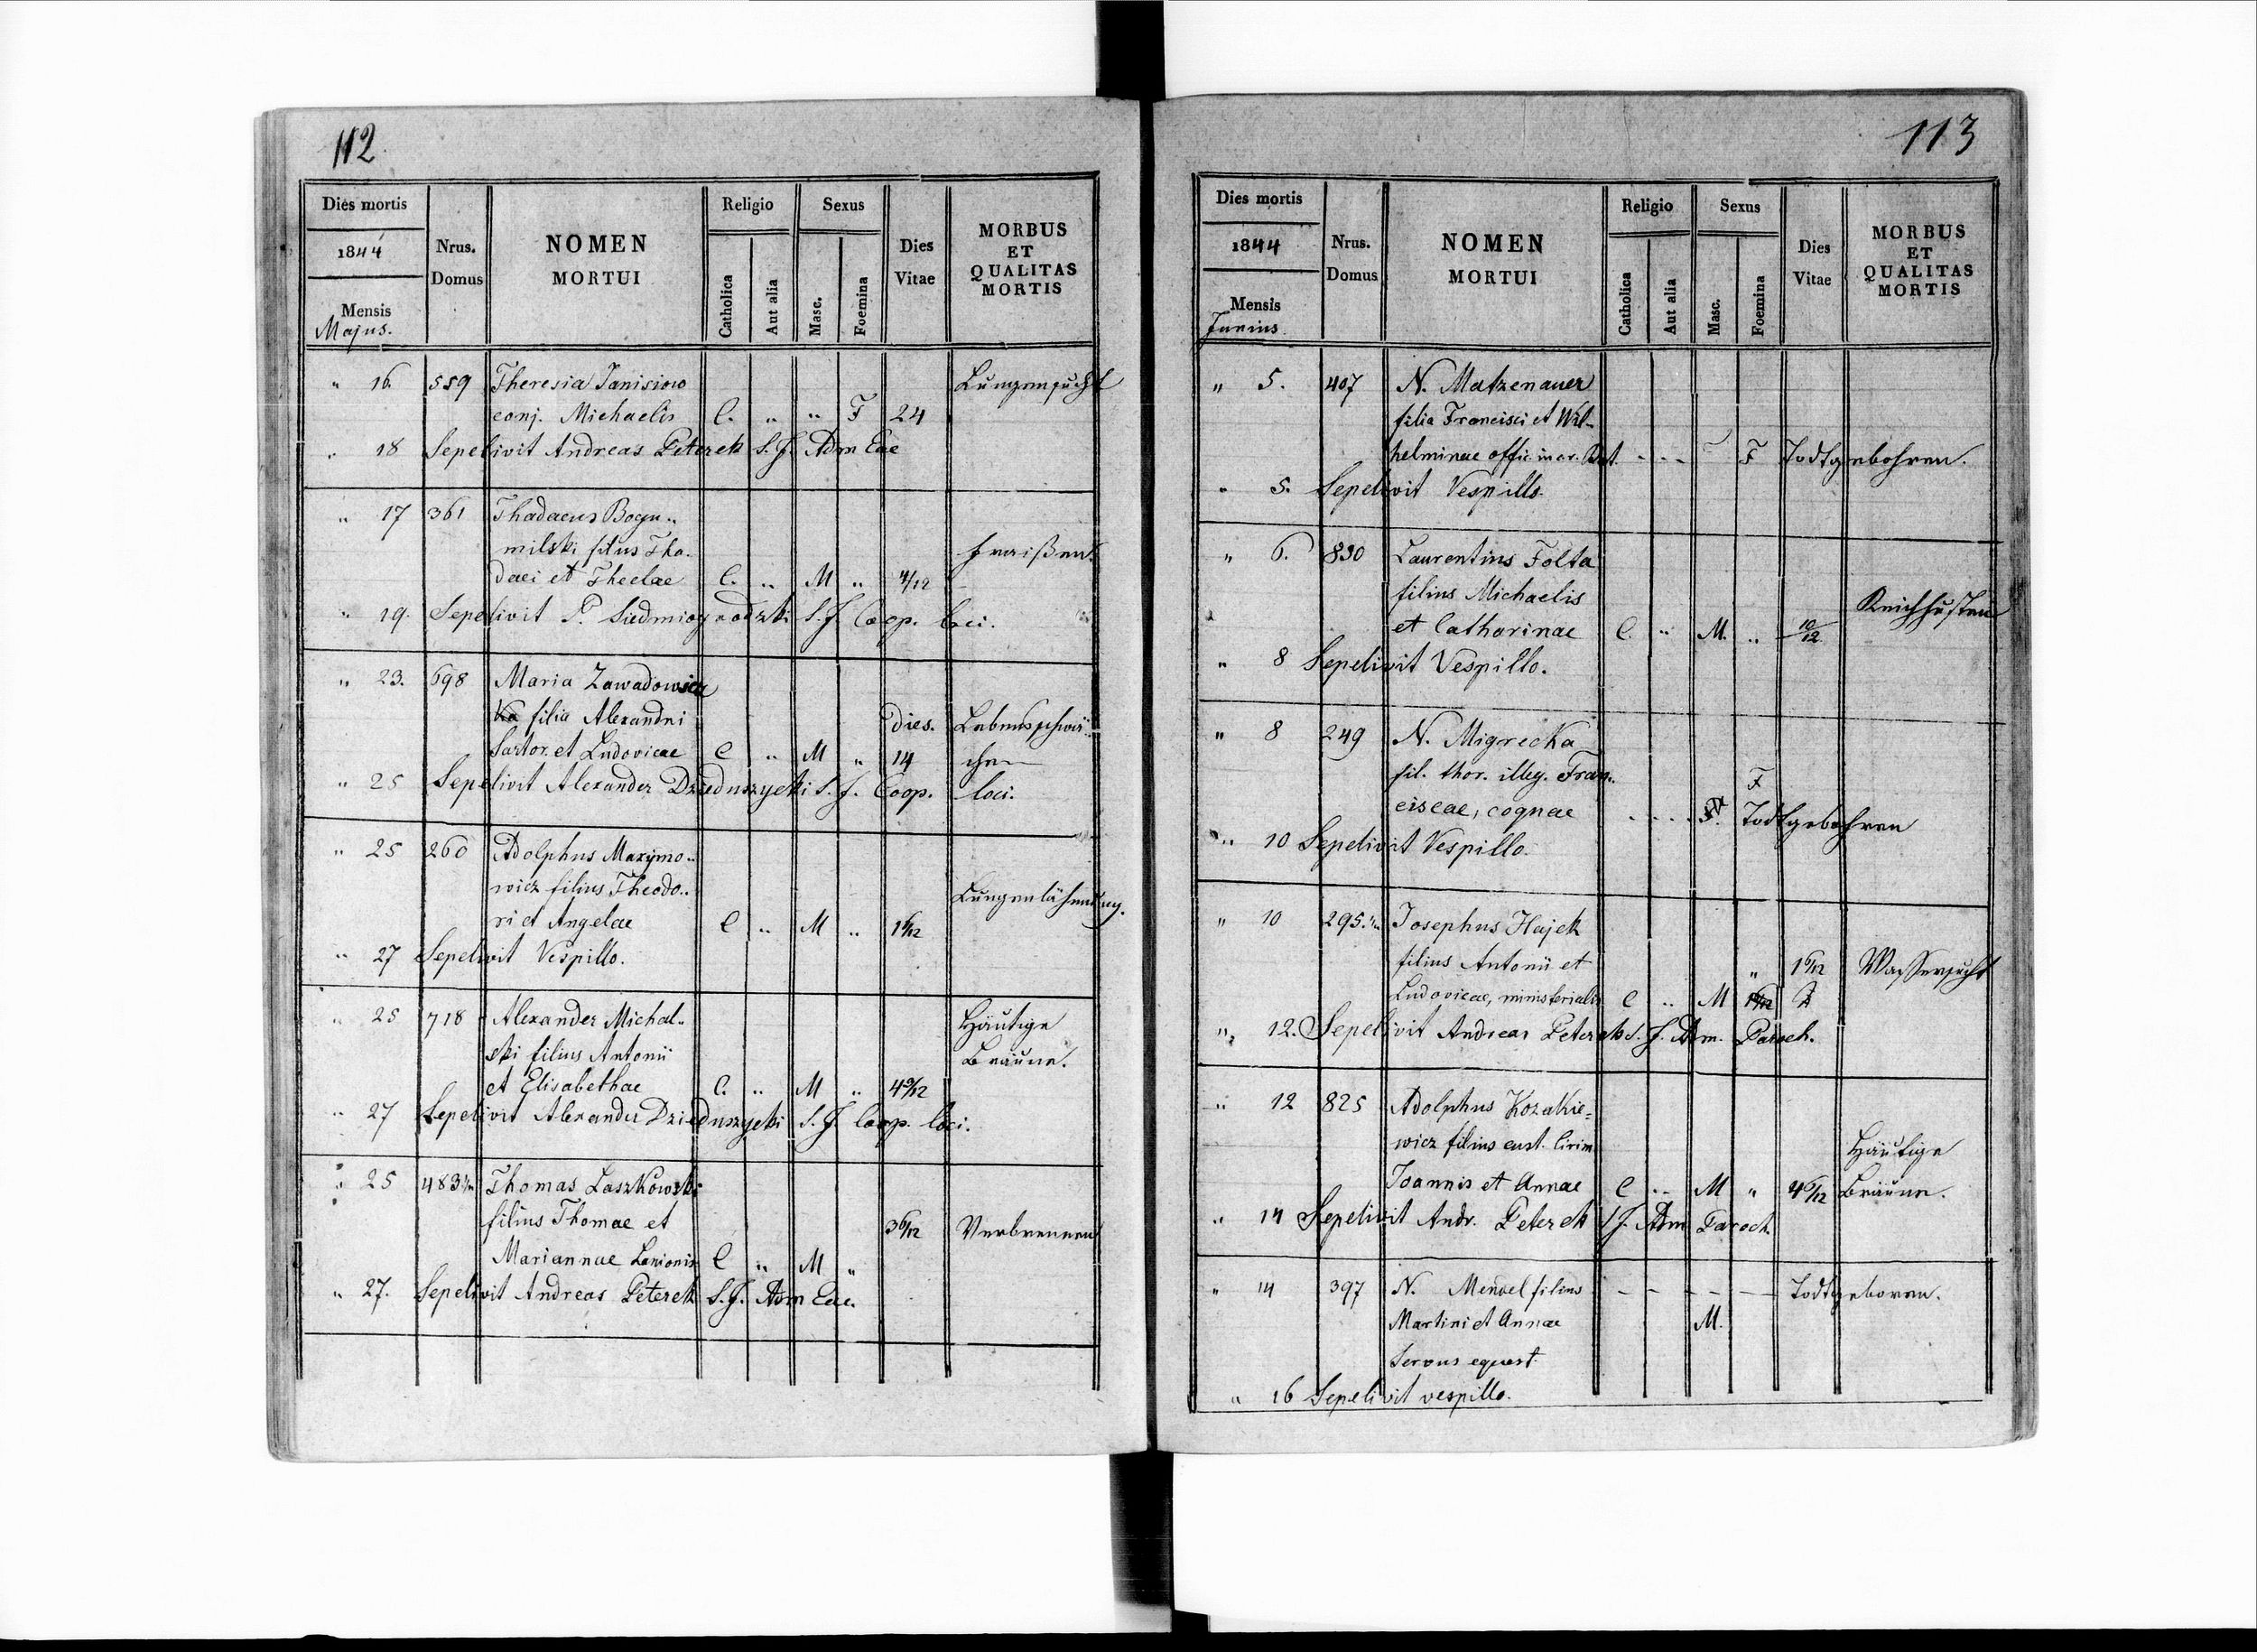 112
Dies mortis
1844
Mensis
Majus.
Nrus.
Domus
NOMEN
MORTUI
Religio
Catholica
Aut alia
Sexus
Masc.
Foemina
Dies
Vitae
MORBUS
ET
QUALITAS
MORTIS
" 16. 559 Theresia Janisiow Lungensucht
conj. Michaelis C. " " F 24
" 18 Sepelivit Andreas Peterek S.J. Adm Eae
" 17 361 Thadaeus Bogu..
milski filius Tha. Fraißen.
daei et Theclae C. " M " 4/12
" 19. Sepelivit P. Siedmiogrodzki S.J. Coop. loci.
" 23. 698 Maria Zawadowicz
filia Alexandri Dies. Lebensschwä..
Sartor. et Ludovicae C " M " 14 che
" 25 Sepelivit Alexander Dzieduszycki S.J. Coop. loci.
" 25 260 Adolphus Maxymo..
wicz filius Theodo.. Lungenlähmung.
ri et Angelae C " M "
" 27 Sepelivit Vespillo.
" 25 718 Alexander Michal.. Häutige
ski filius Antonii Bräune.
et Elisabethae C. " M "
" 27 Sepelivit Alexander Dzieduszycki S.J. Coop. loci.
" 25 483 Thomas Laszkowski
filius Thomae et 3 6/12 Verbrennen
Mariannae Lanionis C " M "
" 27. Sepelivit Andreas Peterek S.J. Adm Eae.
113
Dies mortis
1844
Mensis
Junius
Nrus.
Domus
NOMEN
MORTUI
Religio
Catholica
Aut alia
Sexus
Masc.
Foemina
Dies
Vitae
MORBUS
ET
QUALITAS
MORTIS
" 5. 407 N. Matzenauer
filia Francisci et Wil-
helminae offic. F Todtgebohren.
" 5. Sepelivit Vespillo.
" 6. 830 Laurentius Folta
filius Michaelis Keichhusten
et Catharinae C. " M. " 10/12
" 8 Sepelivit Vespillo.
" 8 249 N. Migrecka
fil. thor. illeg. Fran.. F
ciscae, cognae Todtgebohren
" 10 Sepelivit Vespillo.
" 10 295. Josephus Hajek
filius Antonii et " 1 6/12 Wassersucht
Ludovicae, ministerialis C " M
" 12. Sepelivit Andreas Peterek S.J. Adm. Paroch.
" 12 825 Adolphus Kozakie=
wicz filius cust. Crim Häutige
Joannis et Annae C " M " 4 6/12 Bräune.
" 14 Sepelivit Andr. Peterek S.J. Adm Paroch.
" 14 397 N. Menvel filius - - - - - Todtgeboren.
Martini et Annae M.
Servus equest.
" 16 Sepelivit vespillo.